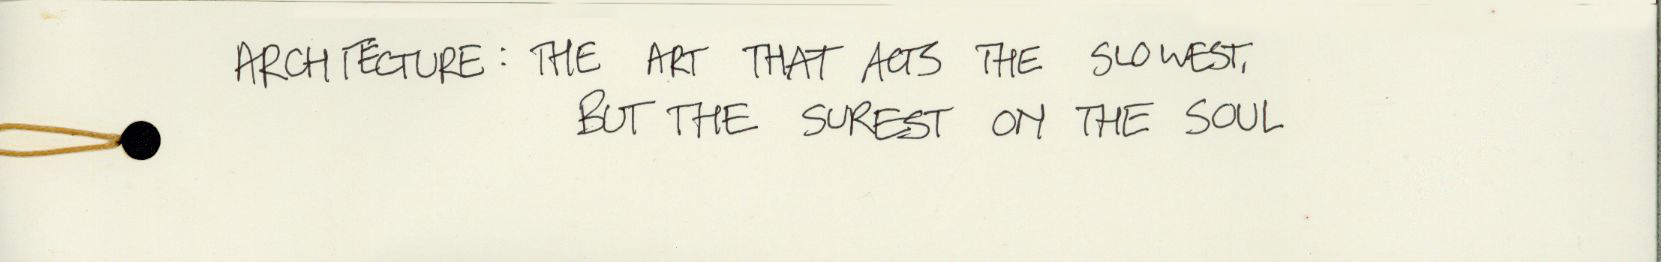 ARCHITECTURE: THE ART THAT ACTS THE SLOWEST,
BUT THE SUREST ON THE SOUL